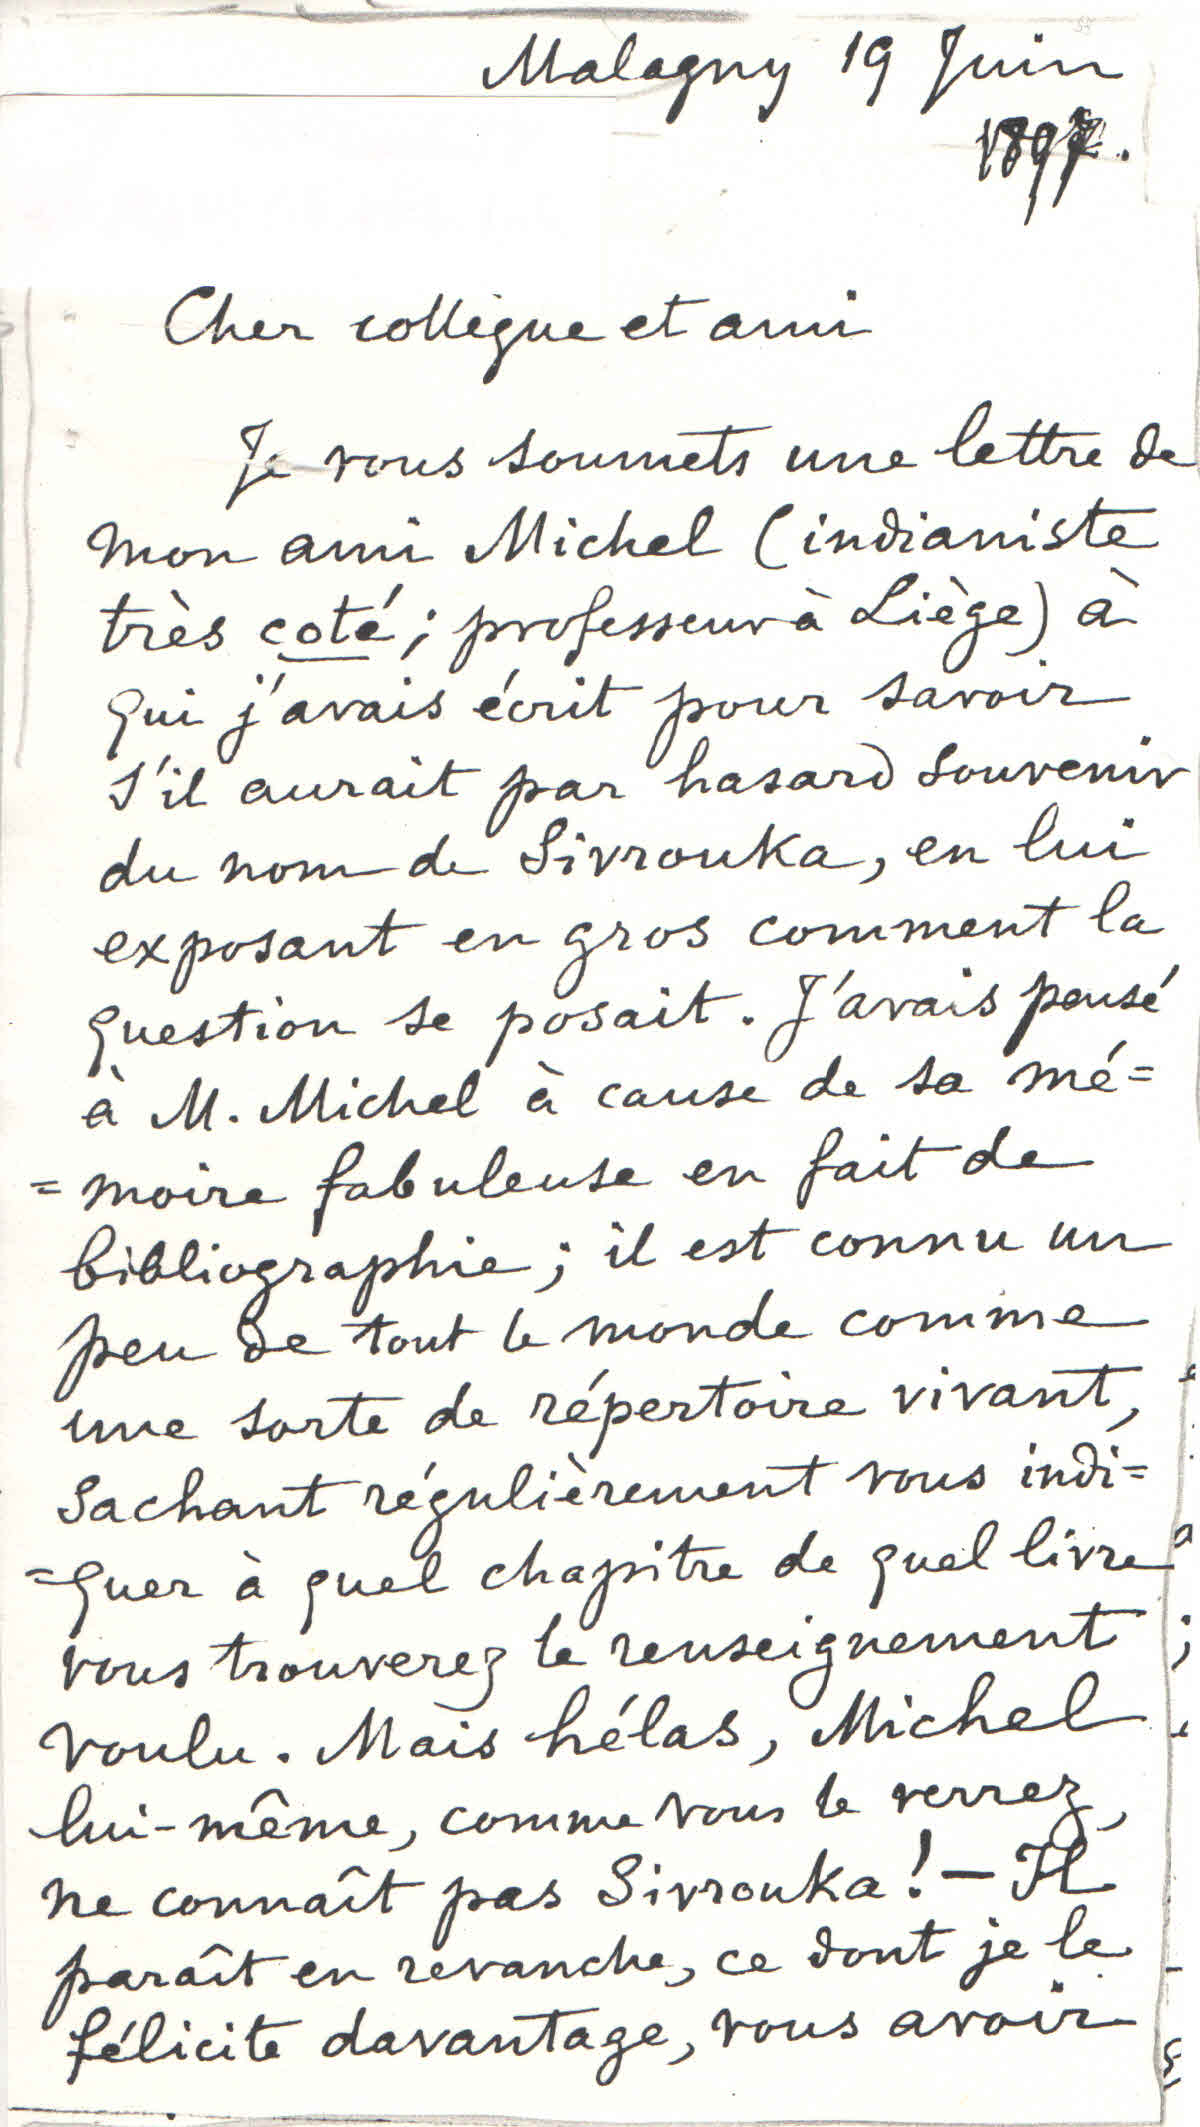 Malagny 19 Juin
1897.
Cher collègue et ami
Je vous soumets une lettre de
mon ami Michel (indianiste
très coté; professeur à Liège) à
qui j'avais écrit pour savoir
s'il aurait par hasard souvenir
du nom de Sivrouka, en lui
exposant en gros comment la
question se posait. J'avais pensé
à M. Michel à cause de sa mé=
=moire fabuleuse en fait de
bibliographie; il est connu un
peu de tout le monde comme
une sorte de répertoire vivant,
sachant régulièrement vous indi=
=quer à quel chapitre de quel livre
vous trouverez le renseignement
voulu. Mais hélas, Michel
lui-même, comme vous le verrez,
ne connaît pas Sivrouka! — Il
paraît en revanche, ce dont je le
félicite davantage, vous avoir